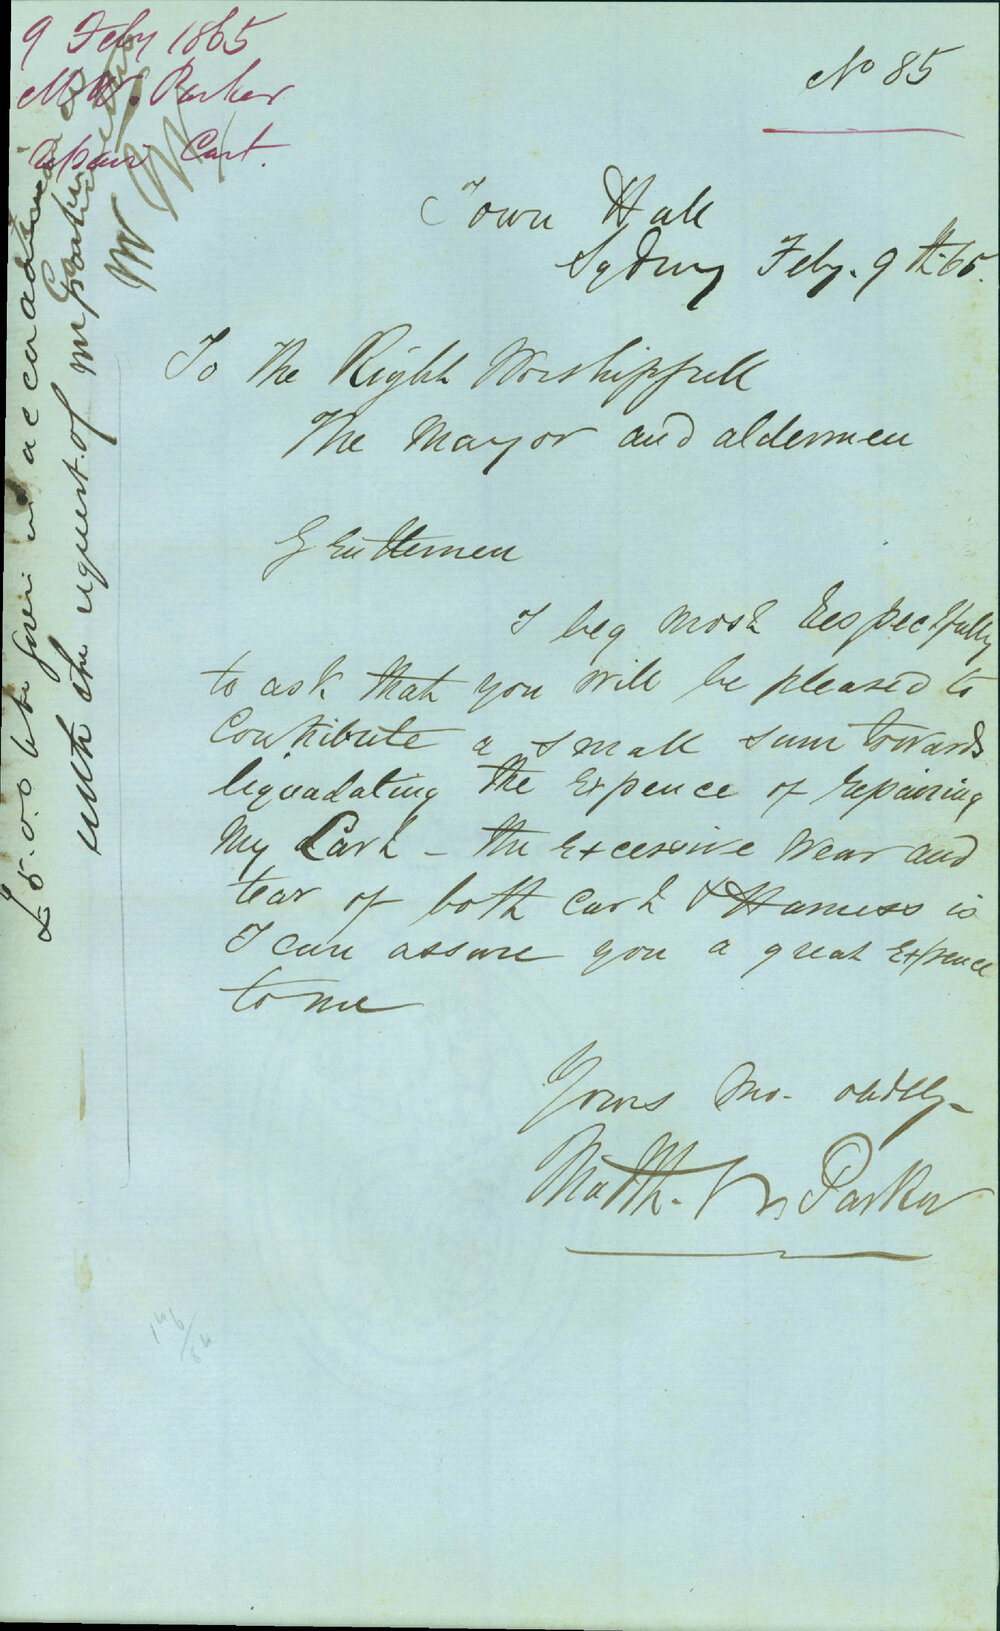 9 Feby 1865
M W. Parker
repair Cart.
No 85
Town Hall
Sydney Feby. 9th 65.
To The Right Worshipfull
The Mayor and aldermen
Gentlemen
I beg most Respectfully
to ask that you will be pleased to
Contribute a small sum towards
liquadating the Expence of Repairing
My Cart – the Excessive Wear and
tear of both Cart & Harness is
I can assure you a great Expence
to me
Yours Mo. obdtly–
Matth. W Parker
£5.0.0 to be given in accordance
with the request of Mr Parker